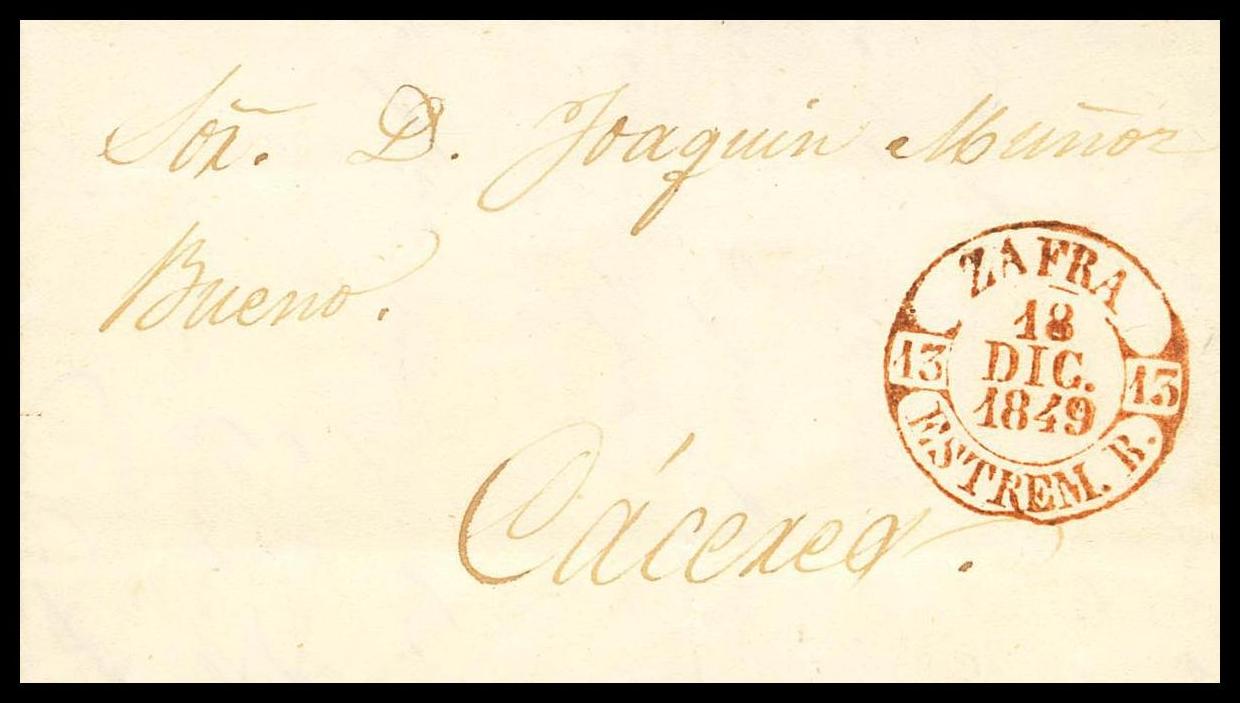 Sor̃. D. Joaquin Muñoz
Bueno.
Cáceres.
ZAFRA
18
DIC.
1849
13
13
ESTREM. B.